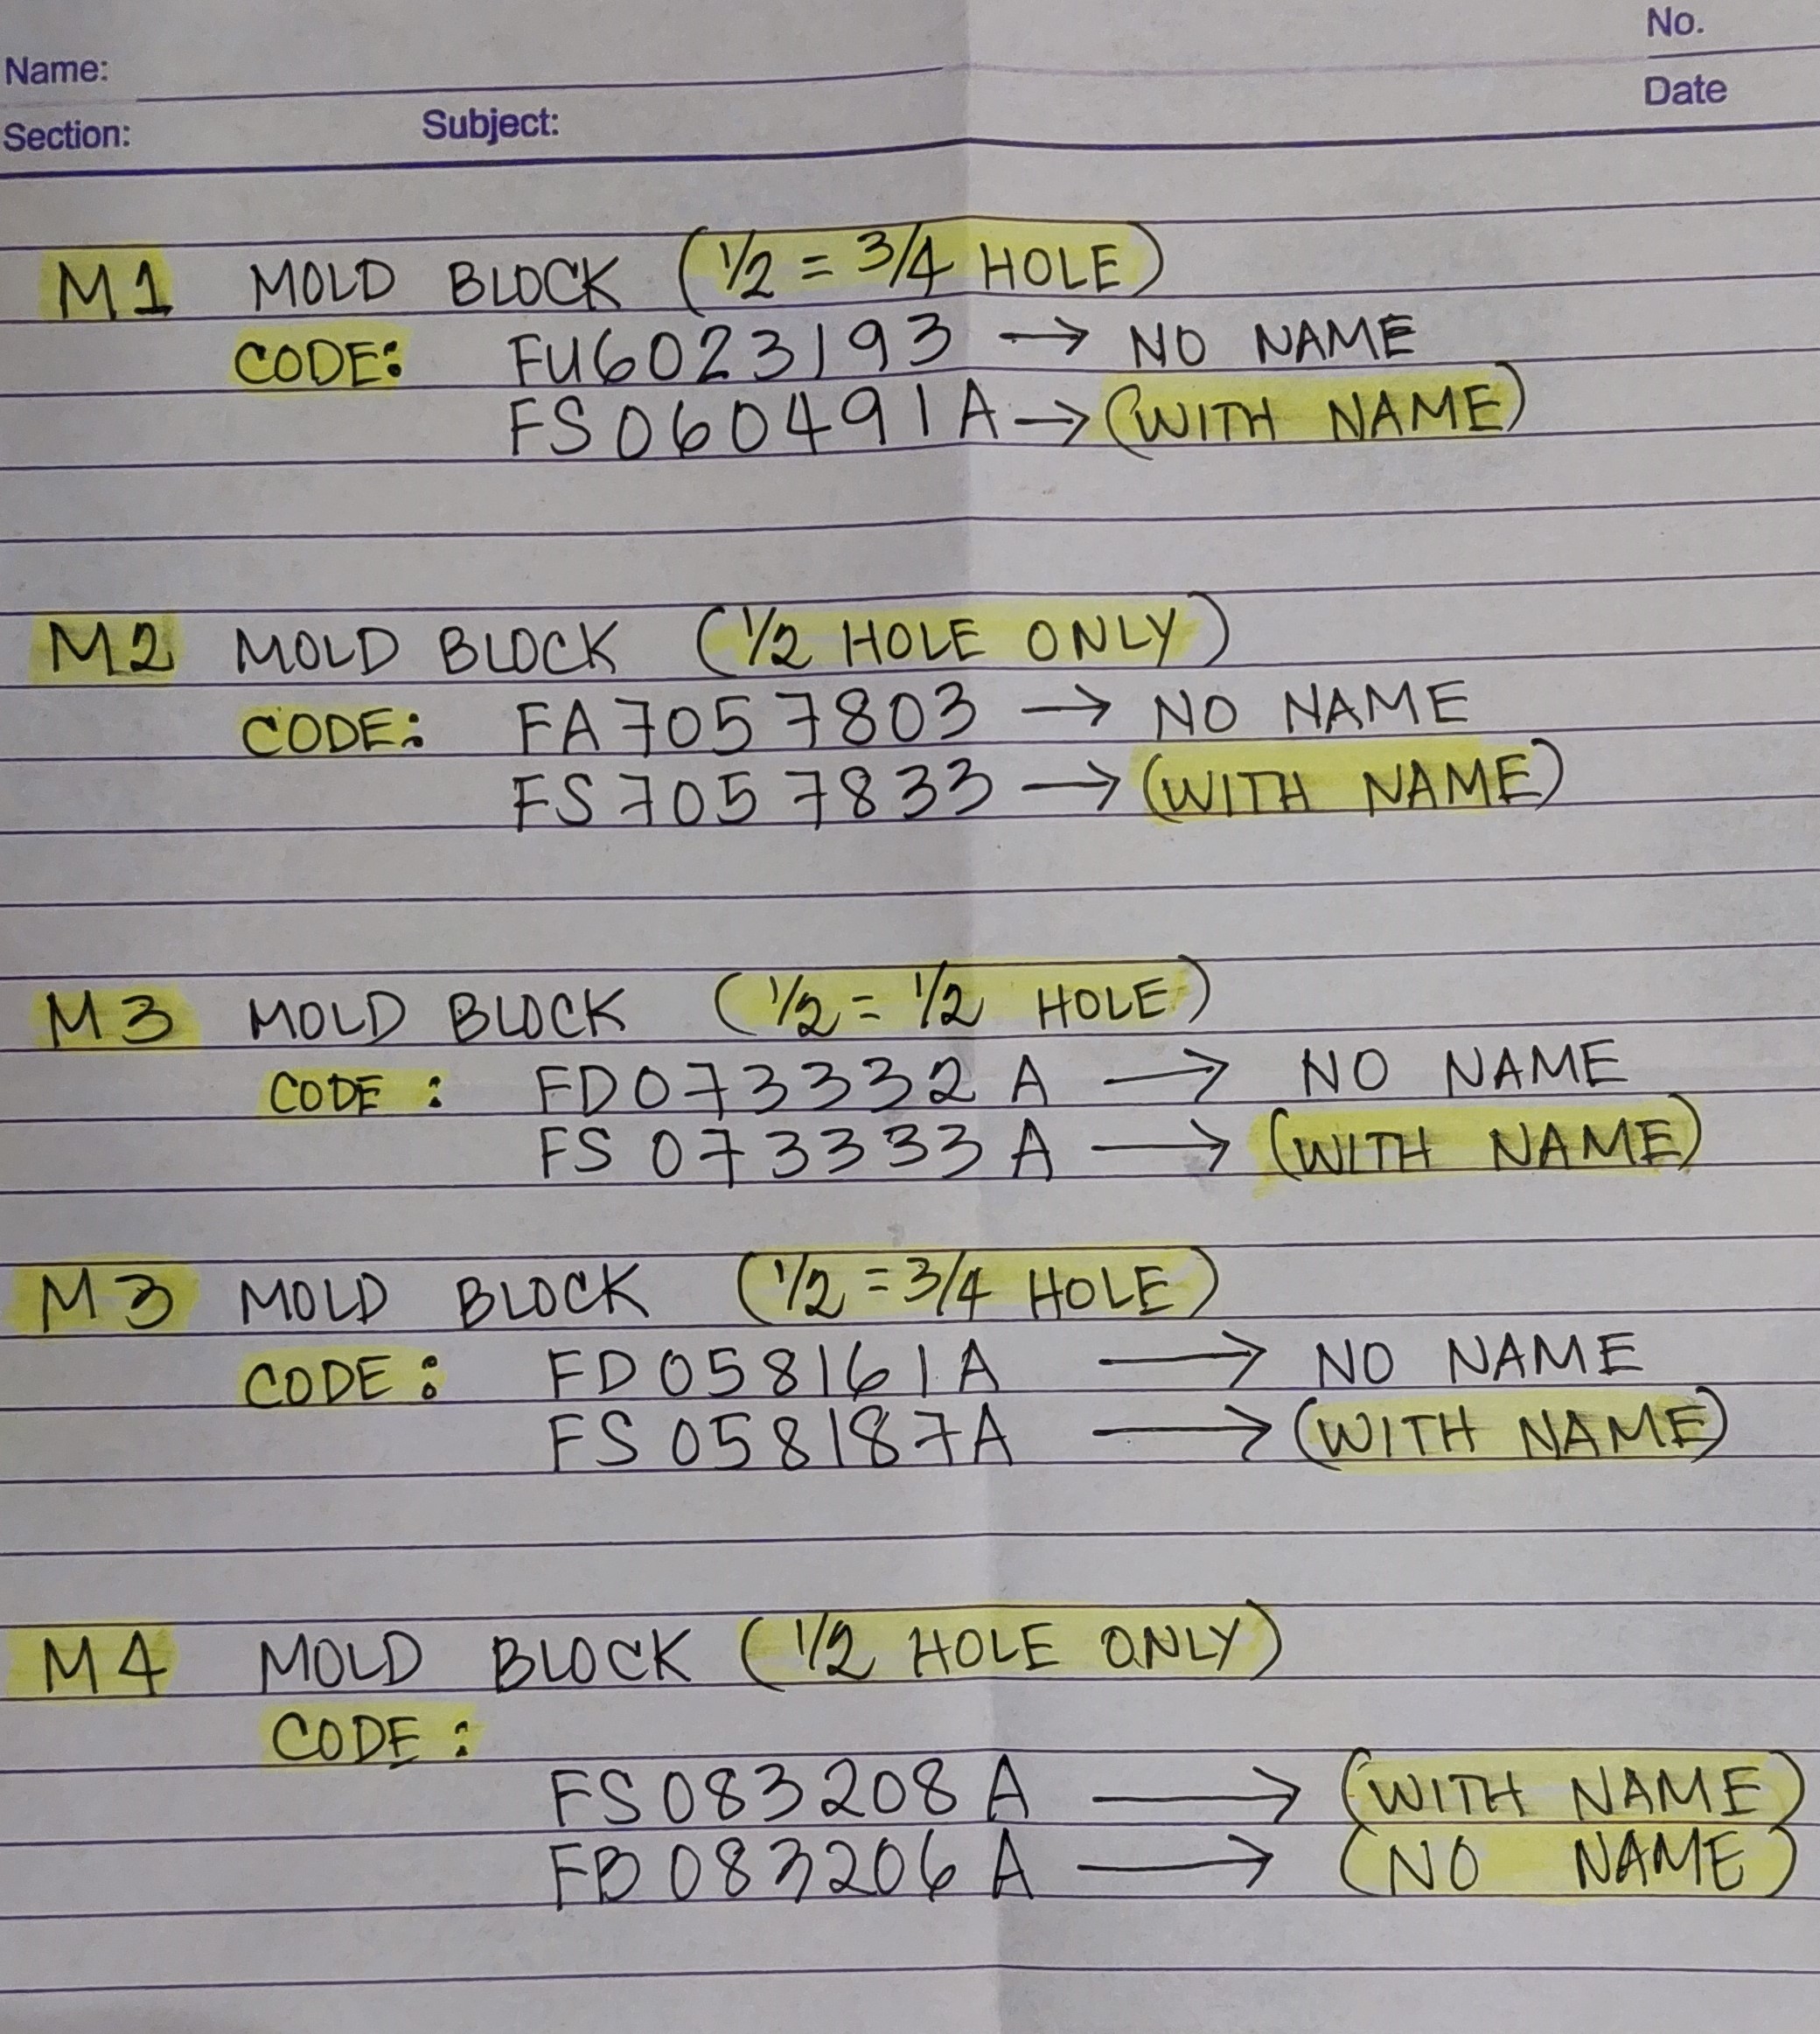 No.
Name:
Date
Section: Subject:
M1 MOLD BLOCK (1/2 = 3/4 HOLE)
CODE: FU6023193 → NO NAME
FS060491A → (WITH NAME)
M2 MOLD BLOCK (1/2 HOLE ONLY)
CODE: FA7057803 → NO NAME
FS7057833 → (WITH NAME)
M3 MOLD BLOCK (1/2 = 1/2 HOLE)
CODE: FD073332A → NO NAME
FS073333A → (WITH NAME)
M3 MOLD BLOCK (1/2 = 3/4 HOLE)
CODE: FD058161A → NO NAME
FS058187A → (WITH NAME)
M4 MOLD BLOCK (1/2 HOLE ONLY)
CODE:
FS083208A → (WITH NAME)
FB083206A → (NO NAME)